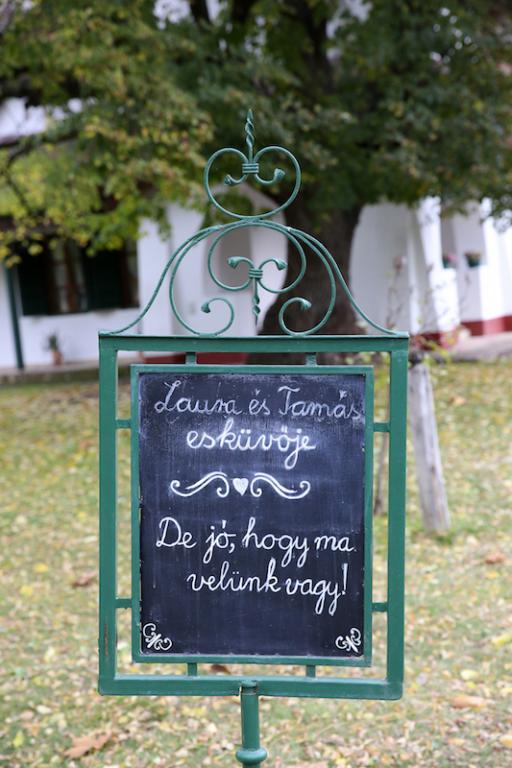 Laura és Tamás
esküvője
De jó, hogy ma
velünk vagy!